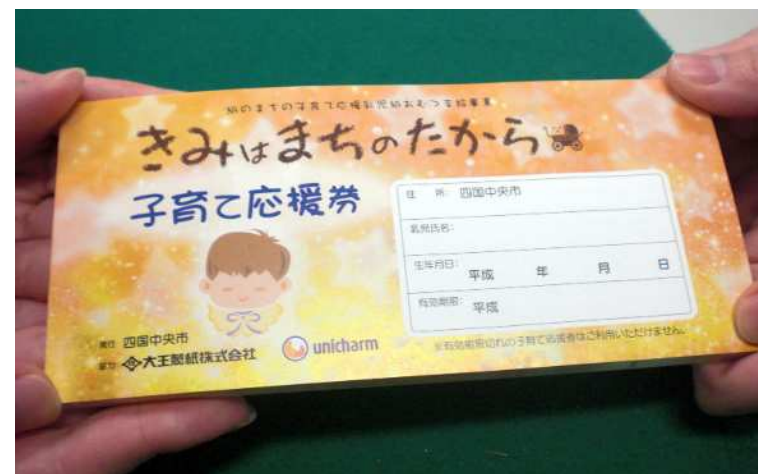 紙のまちの子育て応援乳児紙おむつ支給事業
きみはまちのたから
子育て応援券
住 所: 四国中央市
乳児氏名:
生年月日: 平成 年 月 日
有効期限: 平成
発行 四国中央市
協力 大王製紙株式会社
unicharm
※有効期限切れの子育て応援券はご利用いただけません。